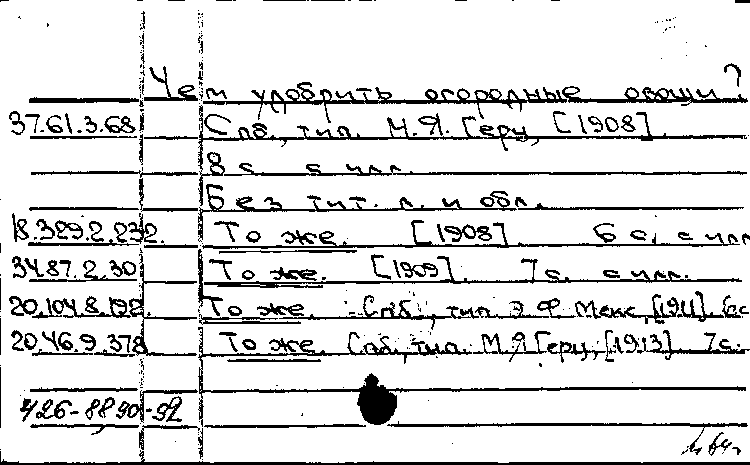 Чем удобрить огородные овощи?
37.61.3.68 Спб., тип. М.Я. Герц, [1908].
8 с. с илл.
Без тит. л. и обл.
18.329.2.232. То же. [1908]. 6 с. с илл
34.87.2.30 То же. [1909]. 7 с. с илл.
20.104.8.192 То же. - Спб., тип. Э. Ф. Мекс, [1911]. 6 с
20.46.9.378 То же. Спб., тип. М.Я Герц, [1913]. 7 с.
426-88,90-92